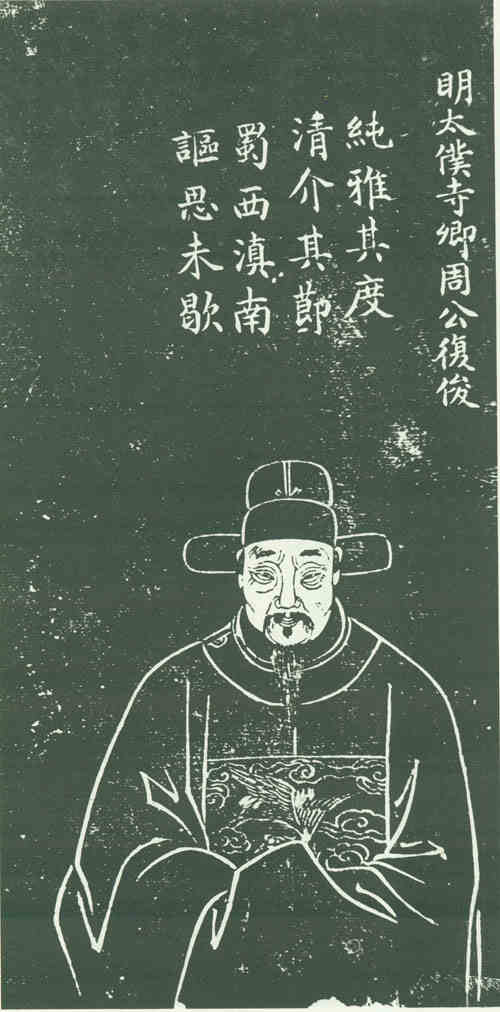 明太僕寺卿周公復俊
純雅其度
清介其節
蜀西滇南
謳思未歇